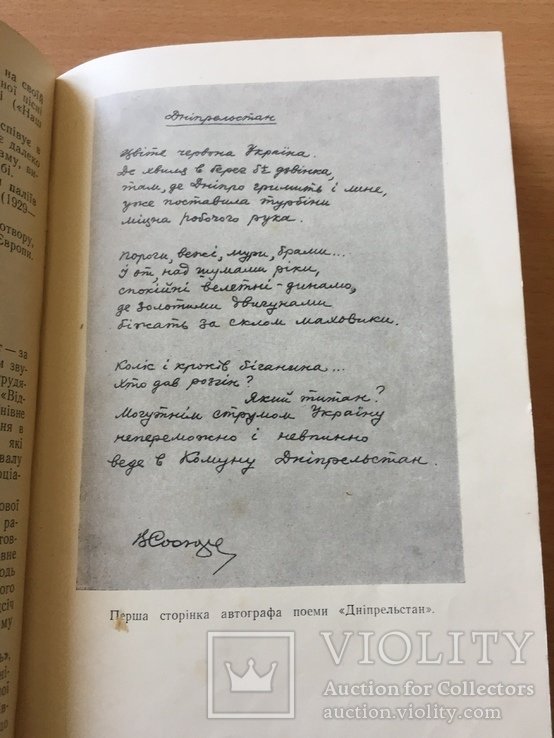 на своїй
ної пісні
ї («Наш
співує в
є далеко
зму, ви-
бі.
паліїв
(1929—
отвору,
Європи.
т — за
м зву-
трудя-
«Від-
нівне
ня в
які
валу
оціа-
ової
ра-
тов-
вне
одь
ого
січ
му
ь».
ні-
ої
ів-
до
Дніпрельстан
Цвіте червона Україна.
Де хвиля в берег б'є дзвінка,
там, де Дніпро гримить і лине,
уже поставила турбіни
міцна робоча рука.
Пороги, вежі, мури, брами...
І от, над шумами ріки,
спокійні велетні-динамо,
де золотими двигунами
біжать за склом маховики.
Коліс і кроків біганина...
Хто дав розгін?
Який титан?
Могутнім струмом Україну
непереможно і невпинно
веде в Комуну Дніпрельстан.
В Сосюра
Перша сторінка автографа поеми «Дніпрельстан».
VIOLITY
Auction for Collectors
auction.violity.com